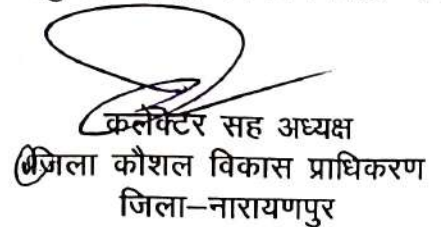 कलेक्टर सह अध्यक्ष
जिला कौशल विकास प्राधिकरण
जिला–नारायणपुर